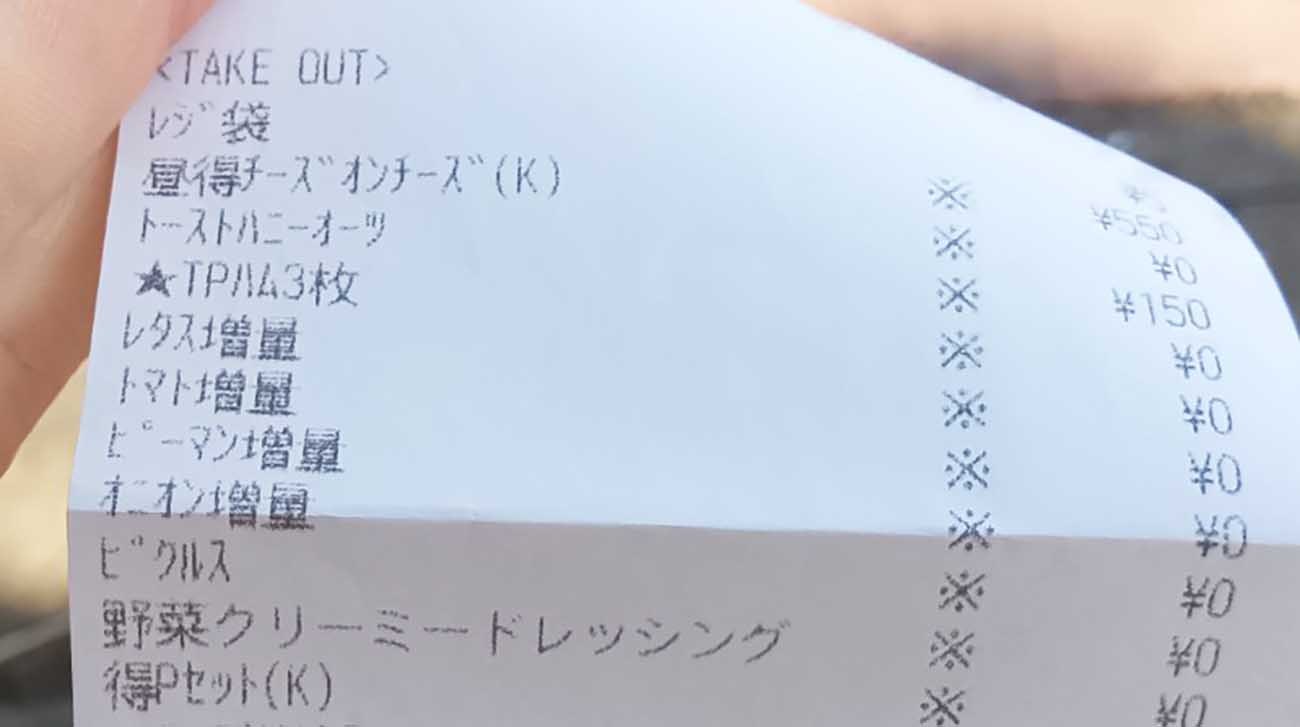 <TAKE OUT>
ﾚｼﾞ袋
昼得ﾁｰｽﾞｵﾝﾁｰｽﾞ(K) ※ ¥550
ﾄｰｽﾄﾊﾆｰｵｰﾂ ※ ¥0
★TPﾊﾑ3枚 ※ ¥150
ﾚﾀｽ増量 ※ ¥0
ﾄﾏﾄ増量 ※ ¥0
ﾋﾟｰﾏﾝ増量 ※ ¥0
ｵﾆｵﾝ増量 ※ ¥0
ﾋﾟｸﾙｽ ※ ¥0
野菜クリーミードレッシング ※ ¥0
得Pｾｯﾄ(K) ※ ¥0